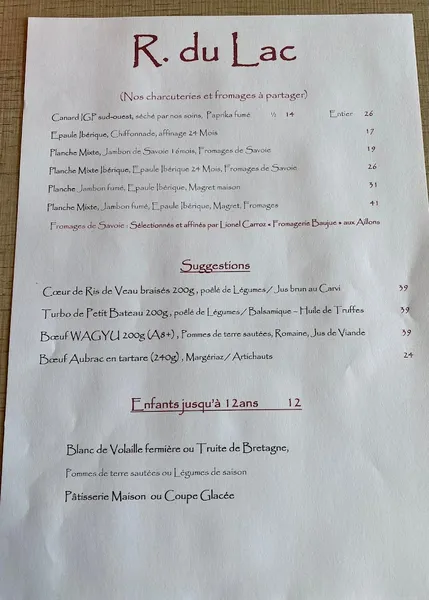 R. du Lac
(Nos charcuteries et fromages à partager)
Canard IGP sud-ouest, séché par nos soins, Paprika fumé ½ 14 Entier 26
Epaule Ibérique, Chiffonnade, affinage 24 Mois 17
Planche Mixte, Jambon de Savoie 16mois, Fromages de Savoie 19
Planche Mixte Ibérique, Epaule Ibérique 24 Mois, Fromages de Savoie 26
Planche Jambon fumé, Epaule Ibérique, Magret maison 31
Planche Mixte, Jambon fumé, Epaule Ibérique, Magret, Fromages 41
Fromages de Savoie : Sélectionnés et affinés par Lionel Carroz • Fromagerie Baujue • aux Allons
Suggestions
Cœur de Ris de Veau braisés 200g, poêlé de Légumes / Jus brun au Carvi 39
Turbo de Petit Bateau 200g, poêlé de Légumes / Balsamique – Huile de Truffes 39
Bœuf WAGYU 200g (A8+), Pommes de terre sautées, Romaine, Jus de Viande 39
Bœuf Aubrac en tartare (240g), Margériaz / Artichauts 24
Enfants jusqu'à 12ans 12
Blanc de Volaille fermière ou Truite de Bretagne,
Pommes de terre sautées ou Légumes de saison
Pâtisserie Maison ou Coupe Glacée